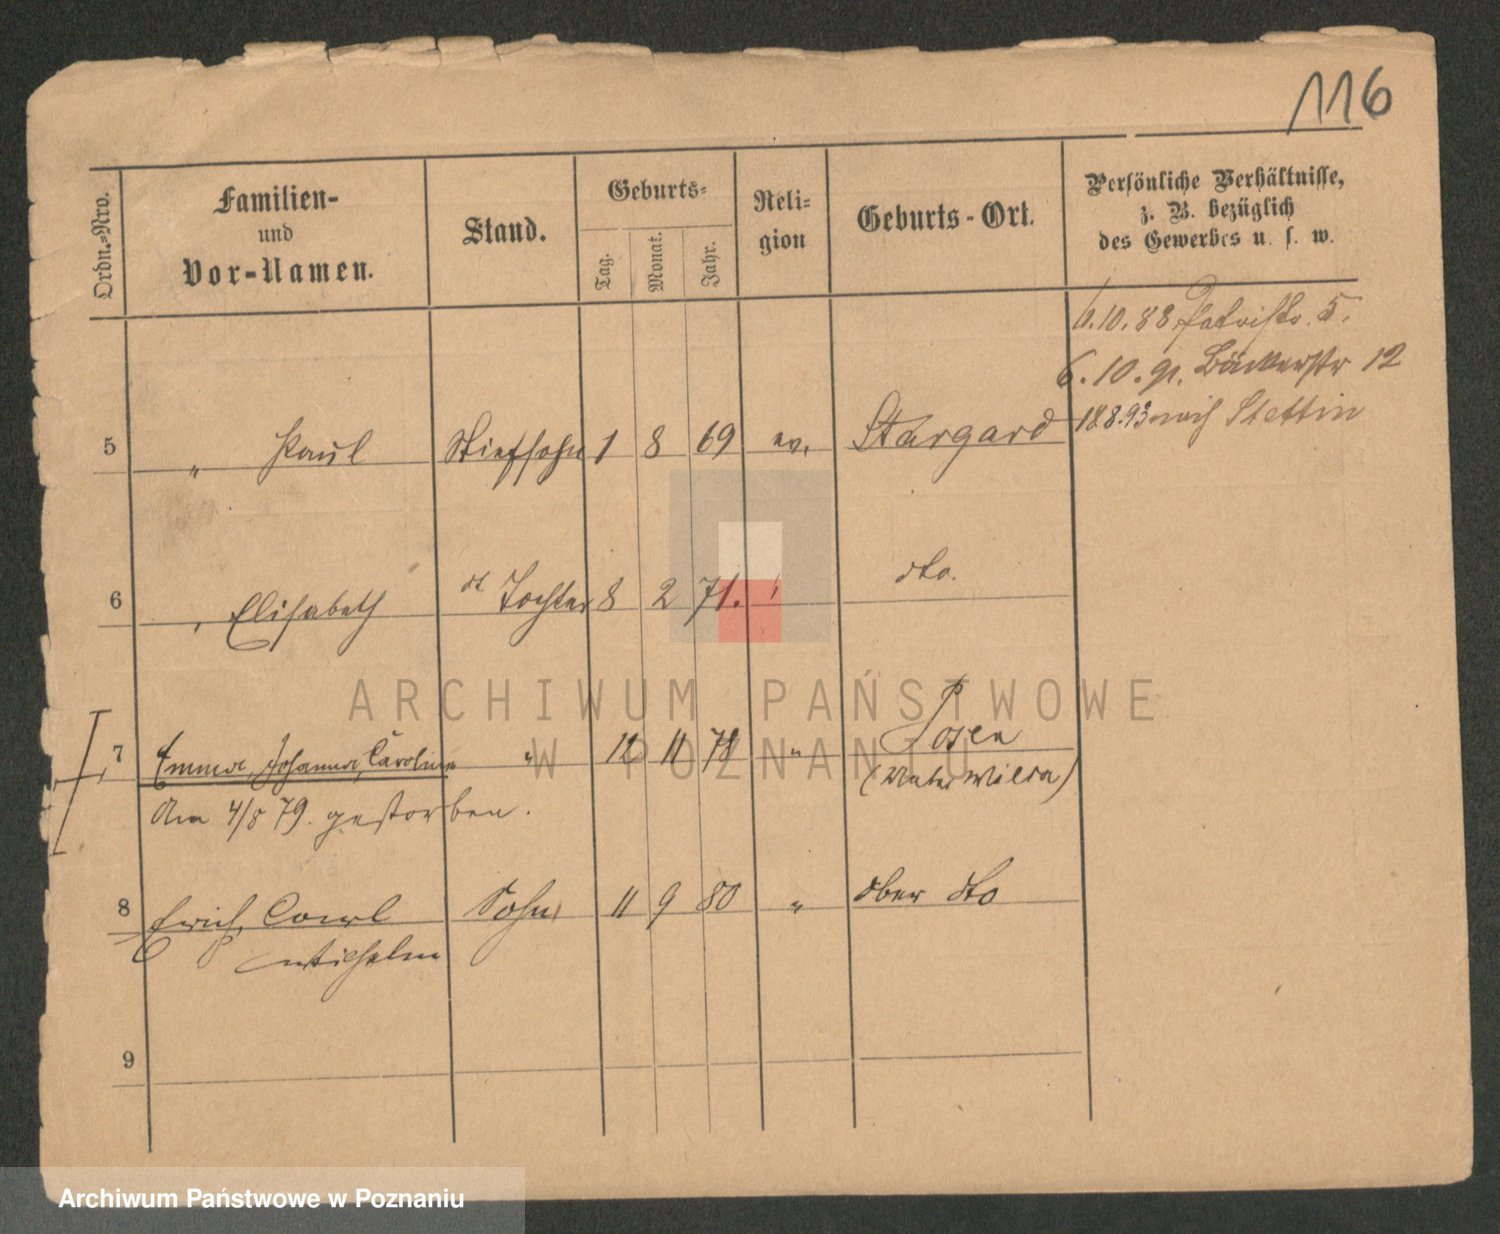 116
Ordn.-Nro.
Familien-
und
Vor-Namen.
Stand.
Geburts-
Tag.
Monat.
Jahr.
Reli-
gion
Geburts-Ort.
Persönliche Verhältnisse,
z. B. bezüglich
des Gewerbes u. s. w.
6.10.88 5.
6.10.91. Bäckerstr 12
18.8.93 nach Stettin
5 " Paul Stiefsohn 1 8 69 ev. Stargard
6 " Elisabeth dt Tochter 8 2 71. " dto.
7 Emma, Johanna, Caroline " 12 11 78 " Posen
(Unter Wilda)
Am 4/5 79. gestorben.
8 Erich, Carl Sohn 11 9 80 " Ober dto
Wilhelm
9
ARCHIWUM PAŃSTWOWE
W POZNANIU
Archiwum Państwowe w Poznaniu